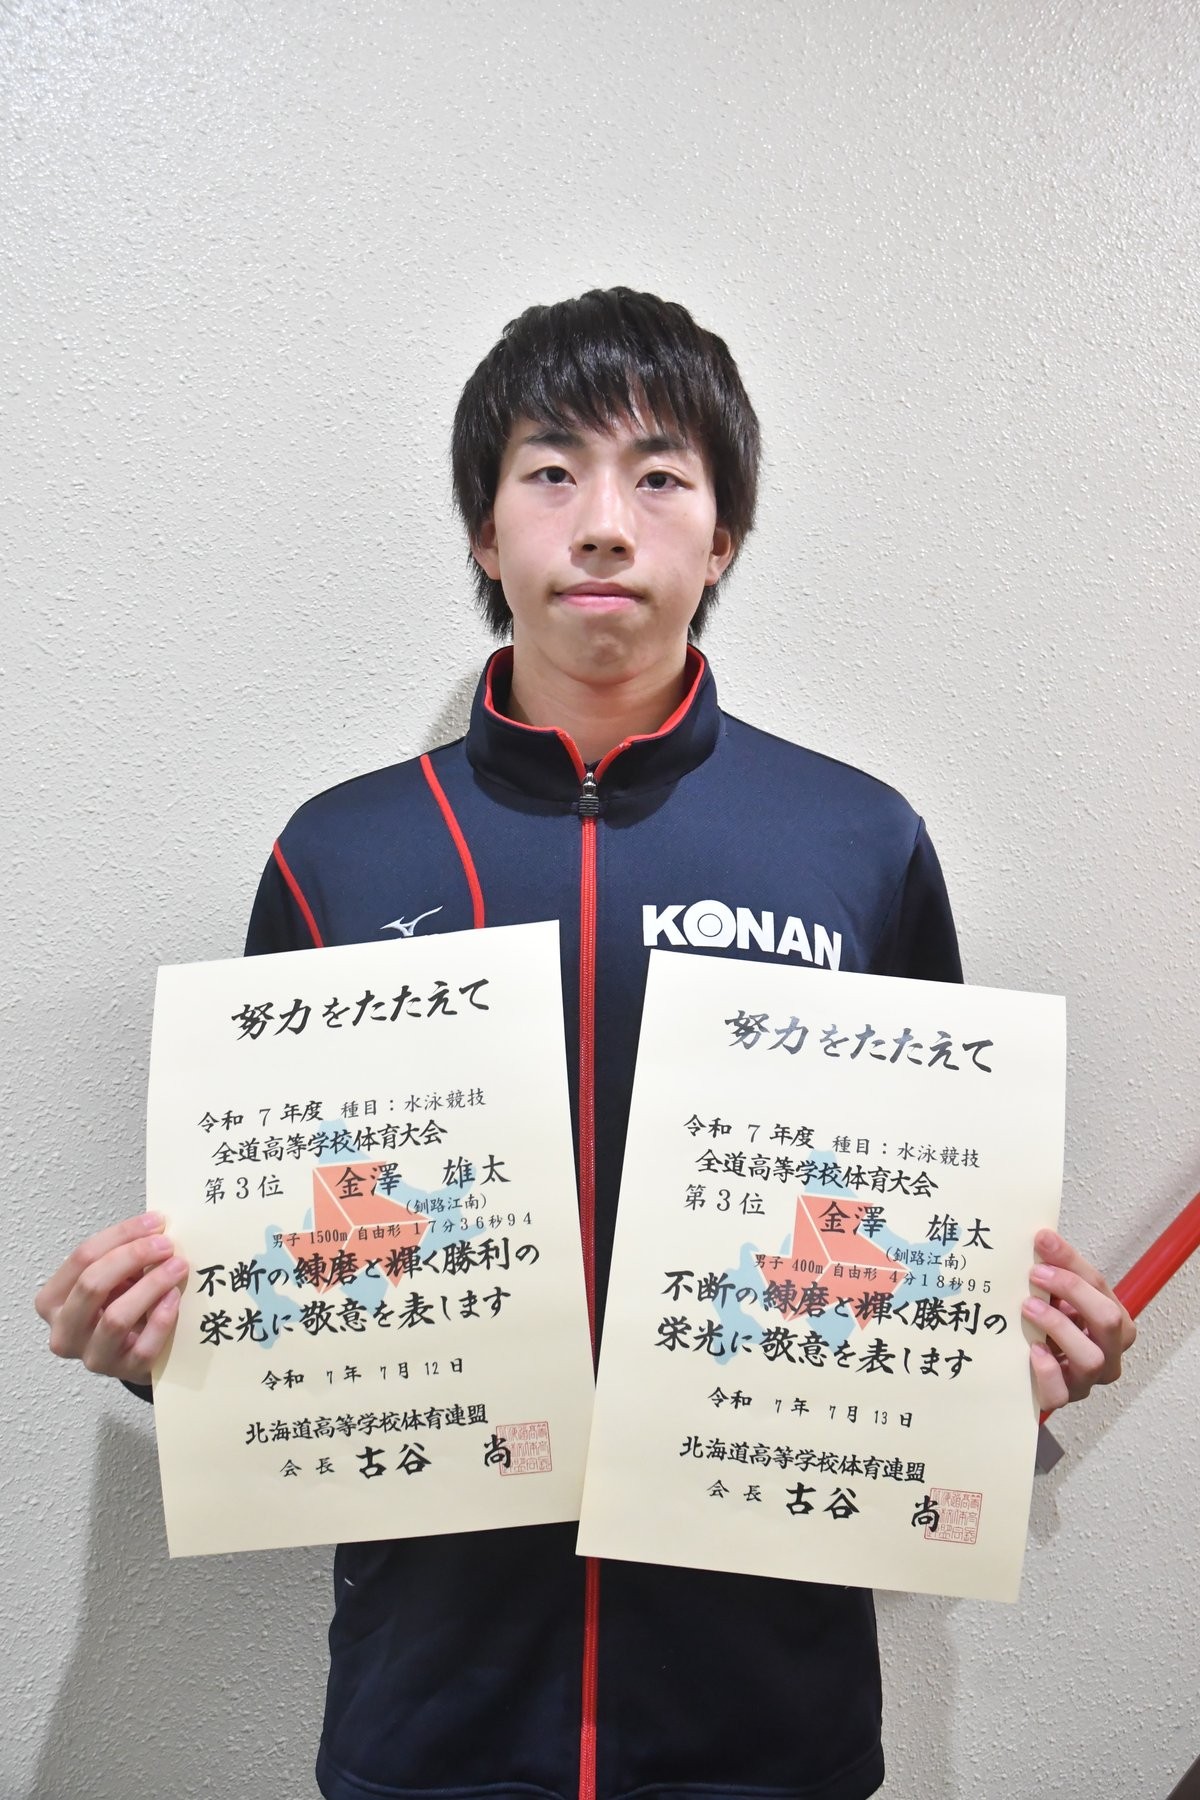 KONAN
努力をたたえて
令和 7 年度 種目：水泳競技
全道高等学校体育大会
第３位 金澤 雄太
(釧路江南)
男子 1500m 自由形 １７分３６秒９４
不断の練磨と輝く勝利の
栄光に敬意を表します
令和 7 年 7 月 12 日
北海道高等学校体育連盟
会長 古谷 尚
努力をたたえて
令和 7 年度 種目：水泳競技
全道高等学校体育大会
第３位 金澤 雄太
(釧路江南)
男子 400m 自由形 ４分１８秒９５
不断の練磨と輝く勝利の
栄光に敬意を表します
令和 7 年 7 月 13 日
北海道高等学校体育連盟
会長 古谷 尚